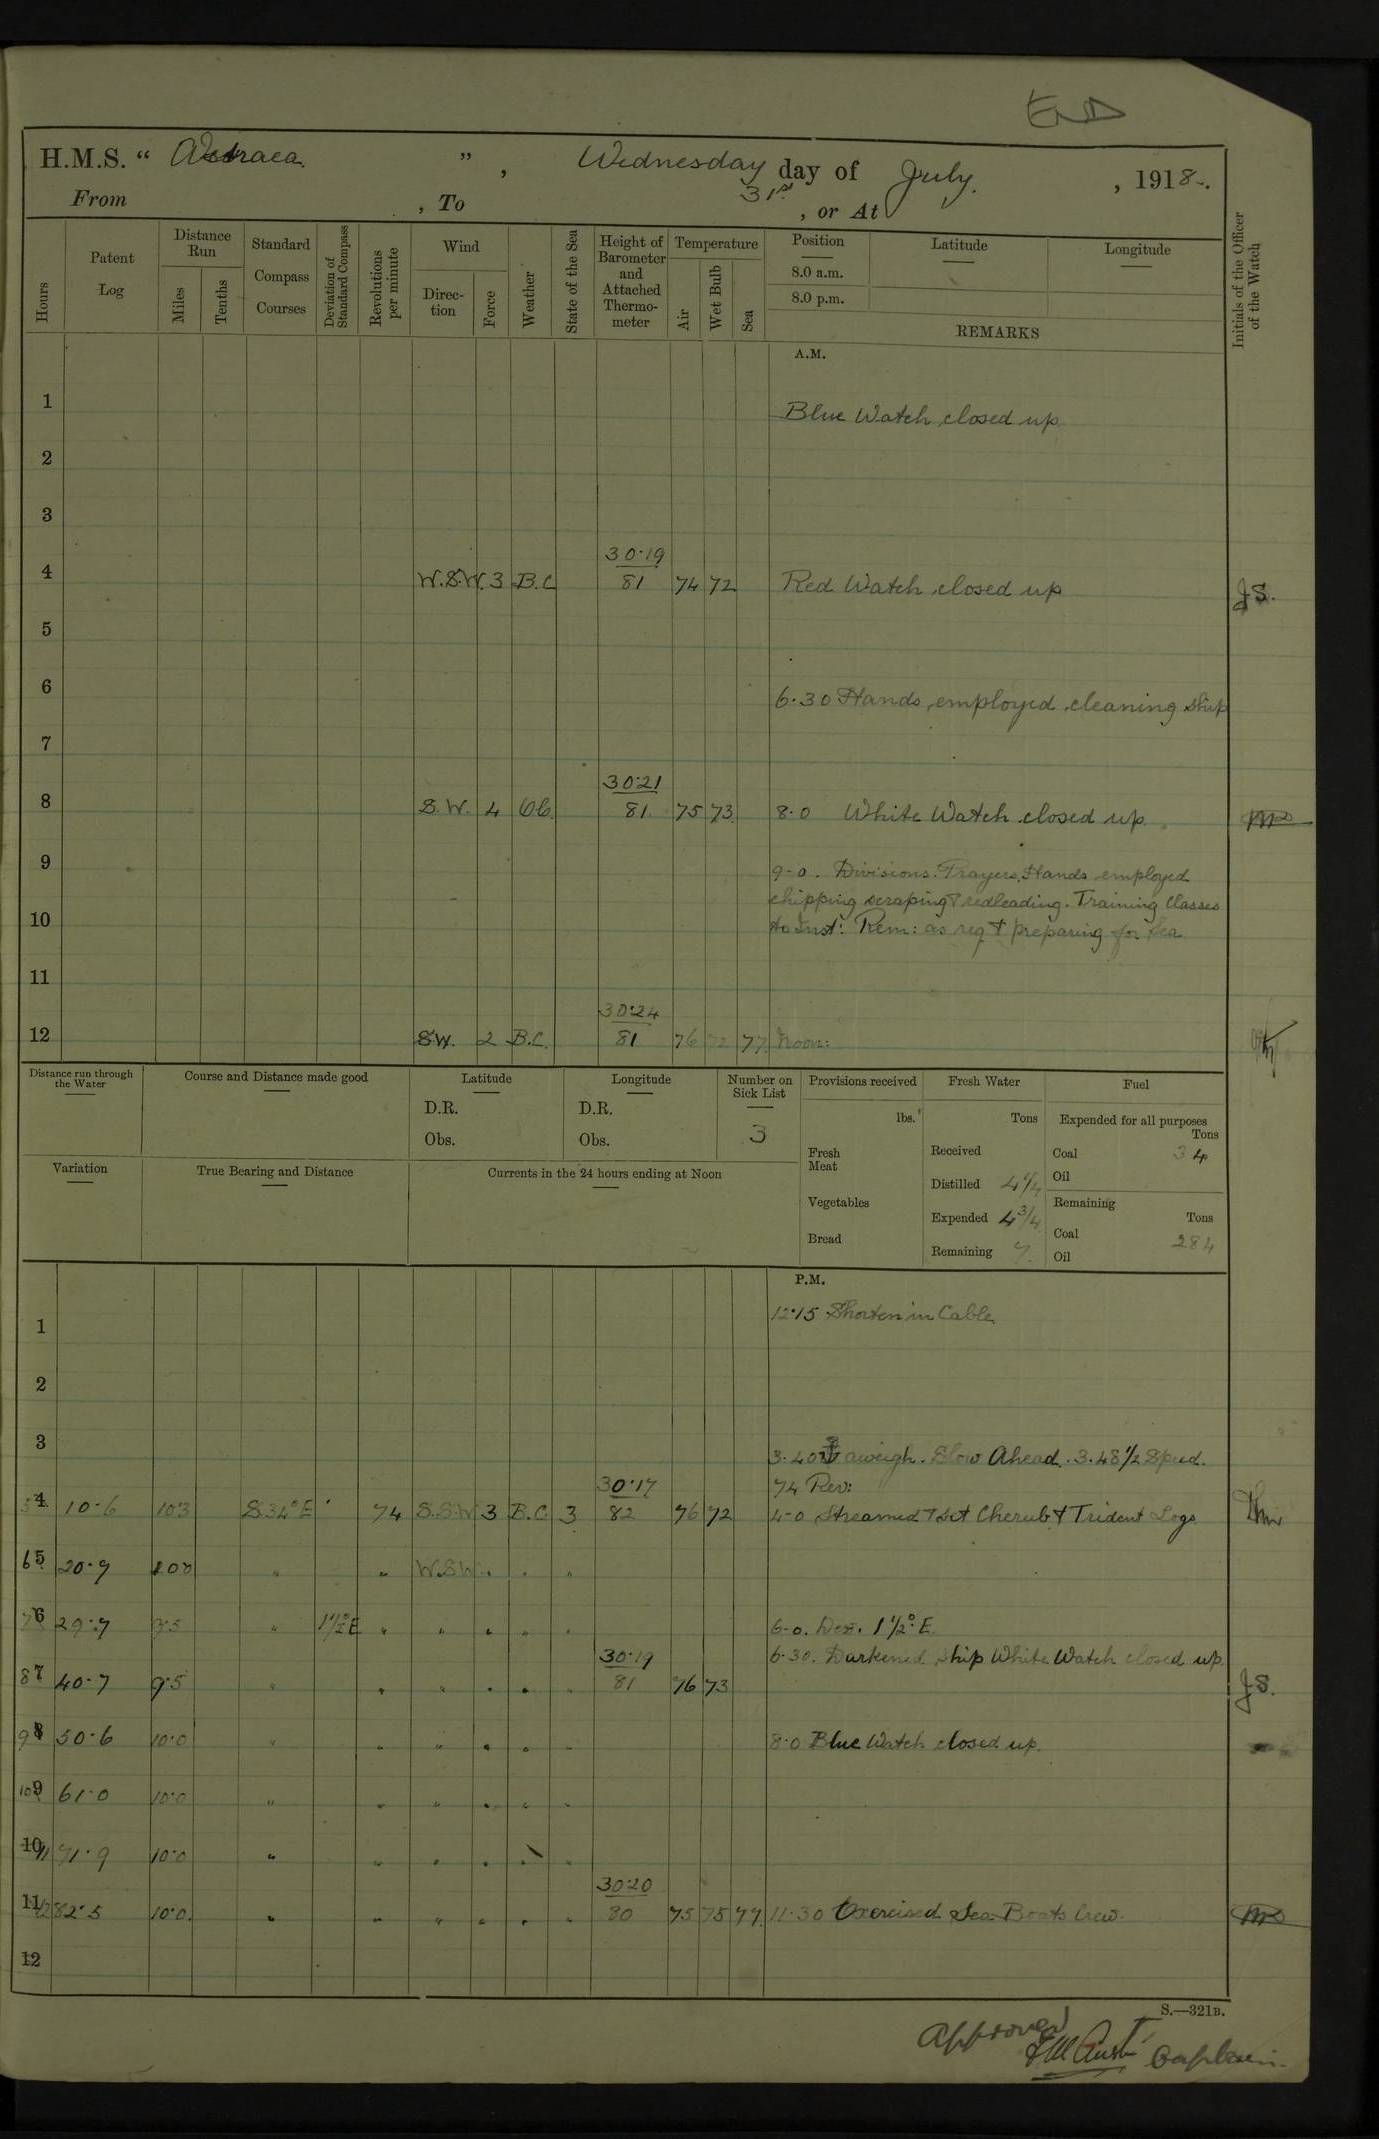 END
H.M.S. " Astraea. ", Wednesday day of July. , 1918-.
From , To 31st , or At
Hours
Patent Log
Distance Run
Miles
Tenths
Standard Compass Courses
Deviation of Standard Compass
Revolutions per minute
Wind
Direc- tion
Force
Weather
State of the Sea
Height of Barometer and Attached Thermo- meter
Temperature
Air
Wet Bulb
Sea
Position
8.0 a.m.
8.0 p.m.
Latitude
Longitude
REMARKS
Initials of the Officer of the Watch
A.M.
1 Blue Watch closed up
2
3
30·19
4 W.S.W. 3 B.C 81 74 72 Red Watch closed up J.S.
5
6 6·30 Hands employed cleaning ship
7
30·21
8 S.W. 4 81 75 73 8·0 White Watch closed up
9 9-0. Divisions. Prayers. Hands employed
chipping scraping & redleading. Training Classes
10 to Inst: Rem: as req & preparing for Sea
11
30·24
12 S.W. 2 B.C. 81 76 72 77 Noon:
Distance run through the Water
Course and Distance made good
Latitude
D.R.
Obs.
Longitude
D.R.
Obs.
Number on Sick List
3
Provisions received
lbs.
Fresh Meat
Vegetables
Bread
Fresh Water
Tons
Received
Distilled 4 1/4
Expended 4 3/4
Remaining
Fuel
Expended for all purposes
Tons
Coal 34
Oil
Remaining
Tons
Coal 284
Oil
Variation
True Bearing and Distance
Currents in the 24 hours ending at Noon
P.M.
12·15 Shorten in Cable
1
2
3
3·40 aweigh. Slow Ahead. 3.48 1/2 Speed.
30·17 74 Rev:
4 10·6 10·3 S.34°E 74 S.S.W 3 B.C 3 82 76 72 4-0 Streamed & set Cherub & Trident Logs
5 6 20·7 " " W.S.W. . . "
6 7 29·7 9·5 " 1 1/2°E " " " " " 6-0. Dev. 1 1/2° E.
30·19 6·30. Darkened ship White Watch closed up.
7 8 40·7 9·5 " " " " " " 81 76 73 J.S.
8 9 50·6 10·0 " " " " " " 8·0 Blue Watch closed up.
9 10 61·0 10·0 " " " " " "
10 11 71·9 10·0 " " " " " "
30·20
11 12 82·5 10·0. " " " " " " 80 75 75 77 11·30 Exercised Sea Boats Crew.
12
S.—321B.
Approved
Captain.